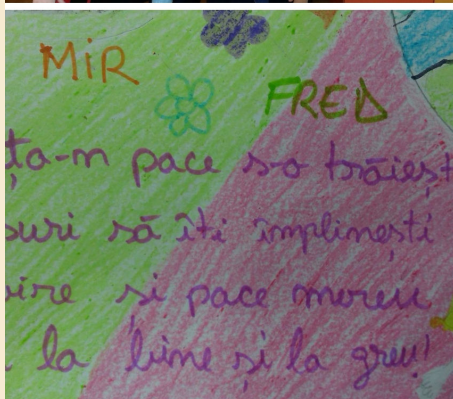 MiR
FRED
ța-n pace s-o trăiești
suri să îti împlinești
ire și pace mereu
la bine și la greu!